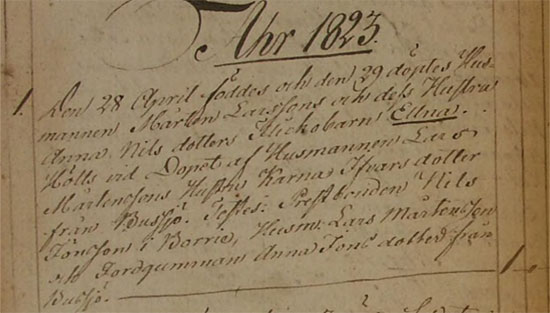 Ahr 1823.
1. Den 28 April föddes och den 29 döptes Hus-
mannen Mårten Larssons och dess Hustru
Anna Nils dotters Flickobarn Ellna.
Hölts vid Dopet af Husmannen Lars
Mårtensons Hustru Karna Ifvars dotter
från Bussjö. Testes: Prestbonden Nils
Jönsson i Borrie, Husm: Lars Mårtensson
och Jordgumman Anna Jöns dotter från
Bussjö.
1